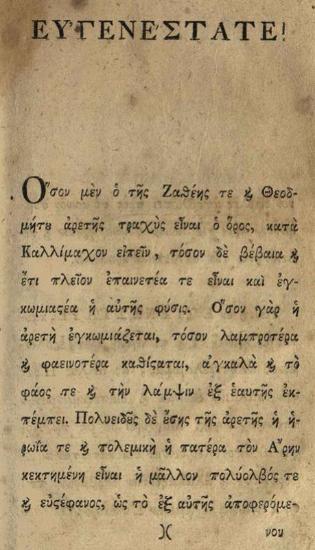 ΕΥΓΕΝΕΣΤΑΤΕ!
Ὅσον μὲν ὁ τῆς Ζαθέης τε ϗ Θεοδ-
μήτȣ ἀρετῆς τραχὺς εἶναι ὁ ὅρος, κατὰ
Καλλίμαχον εἰπεῖν, τόσον δὲ βέβαια ϗ
ἔτι πλεῖον ἐπαινετέα τε εἶναι καὶ ἐγ-
κωμιαϛέα ἡ αὐτῆς φύσις. Ὅσον γὰρ ἡ
ἀρετὴ ἐγκωμιάζεται, τόσον λαμπροτέρα
ϗ φαεινοτέρα καθίϛαται, ἀγκαλὰ ϗ τὸ
φάος τε ϗ τὴν λάμψιν ἐξ ἑαυτῆς ἐκ-
πέμπει. Πολυειδȣ͂ς δὲ ȣ̓́σης τῆς ἀρετῆς ἡ ἡ-
ρωΐα τε ϗ πολεμικὴ ἡ πατέρα τὸν Ἄρην
κεκτημένη εἶναι ἡ μᾶλλον πολύολβός τε
ϗ εὐϛέφανος, ὡς τὸ ἐξ αὐτῆς ἀποφερόμε-
)( νου